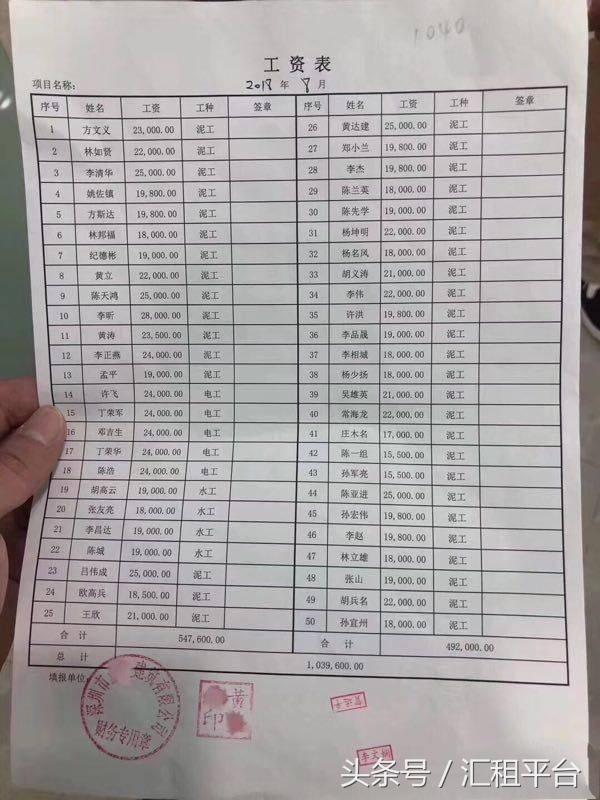 1040
工资表
项目名称: 2018 年 8 月
序号 姓名 工资 工种 签章 序号 姓名 工资 工种 签章
1 方文义 23,000.00 泥工 26 黄达建 25,000.00 泥工
2 林如贤 22,000.00 泥工 27 郑小兰 19,800.00 泥工
3 李清华 25,000.00 泥工 28 李杰 19,800.00 泥工
4 姚佐镇 19,800.00 泥工 29 陈兰英 18,000.00 泥工
5 方斯达 19,800.00 泥工 30 陈先学 19,000.00 泥工
6 林邦福 18,000.00 泥工 31 杨坤明 22,000.00 泥工
7 纪德彬 19,000.00 泥工 32 杨名风 18,000.00 泥工
8 黄立 22,000.00 泥工 33 胡义涛 21,000.00 泥工
9 陈天鸿 25,000.00 泥工 34 李伟 22,000.00 泥工
10 李昕 28,000.00 泥工 35 许洪 19,800.00 泥工
11 黄涛 23,500.00 泥工 36 李品晟 19,000.00 泥工
12 李正燕 24,000.00 泥工 37 李相城 18,000.00 泥工
13 孟平 19,000.00 泥工 38 杨少扬 18,000.00 泥工
14 许飞 24,000.00 电工 39 吴雄英 21,000.00 泥工
15 丁荣军 24,000.00 电工 40 常海龙 22,000.00 泥工
16 邓吉生 24,000.00 电工 41 庄木名 17,000.00 泥工
17 丁荣华 24,000.00 电工 42 陈一组 15,500.00 泥工
18 陈浩 24,000.00 电工 43 孙军亮 15,500.00 泥工
19 胡高云 19,000.00 水工 44 陈亚进 25,000.00 泥工
20 张友亮 18,000.00 水工 45 孙宏伟 19,800.00 泥工
21 李昌达 19,000.00 水工 46 李赵 19,800.00 泥工
22 陈城 19,000.00 水工 47 林立雄 18,000.00 泥工
23 吕伟成 25,000.00 泥工 48 张山 19,000.00 泥工
24 欧高兵 18,500.00 泥工 49 胡兵名 22,000.00 泥工
25 王欣 21,000.00 泥工 50 孙宜州 18,000.00 泥工
合计 547,600.00 合计 492,000.00
总计 1,039,600.00
填报单位:
深圳市 建筑有限公司
财务专用章
黄
印
头条号 / 汇租平台